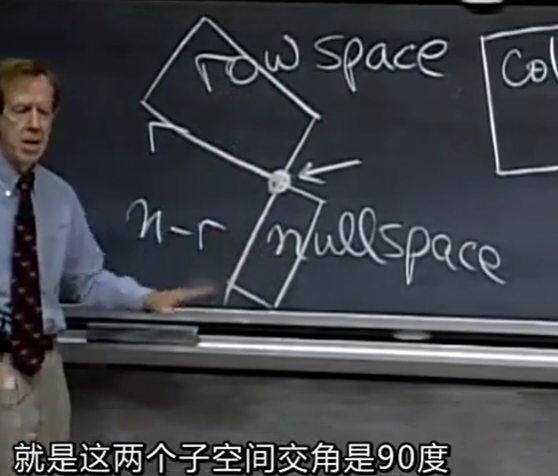 row space
col
r
n-r
nullspace
就是这两个子空间交角是90度